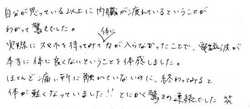 自分が思っている以上に内臓が疲れているということが
わかって驚きでした。
実際にスマホを持ってみて体に力が入らなかったことで、電磁波が
本当に体に良くないということを体感しました。
ほとんど痛い所に触れていないのに、終わってみると
体が軽くなっていました!!とにかく驚きの連続でした 笑